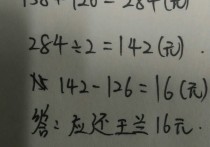 158+126=284(元)
284÷2=142(元).
142-126=16(元)
答:应还王兰16元.